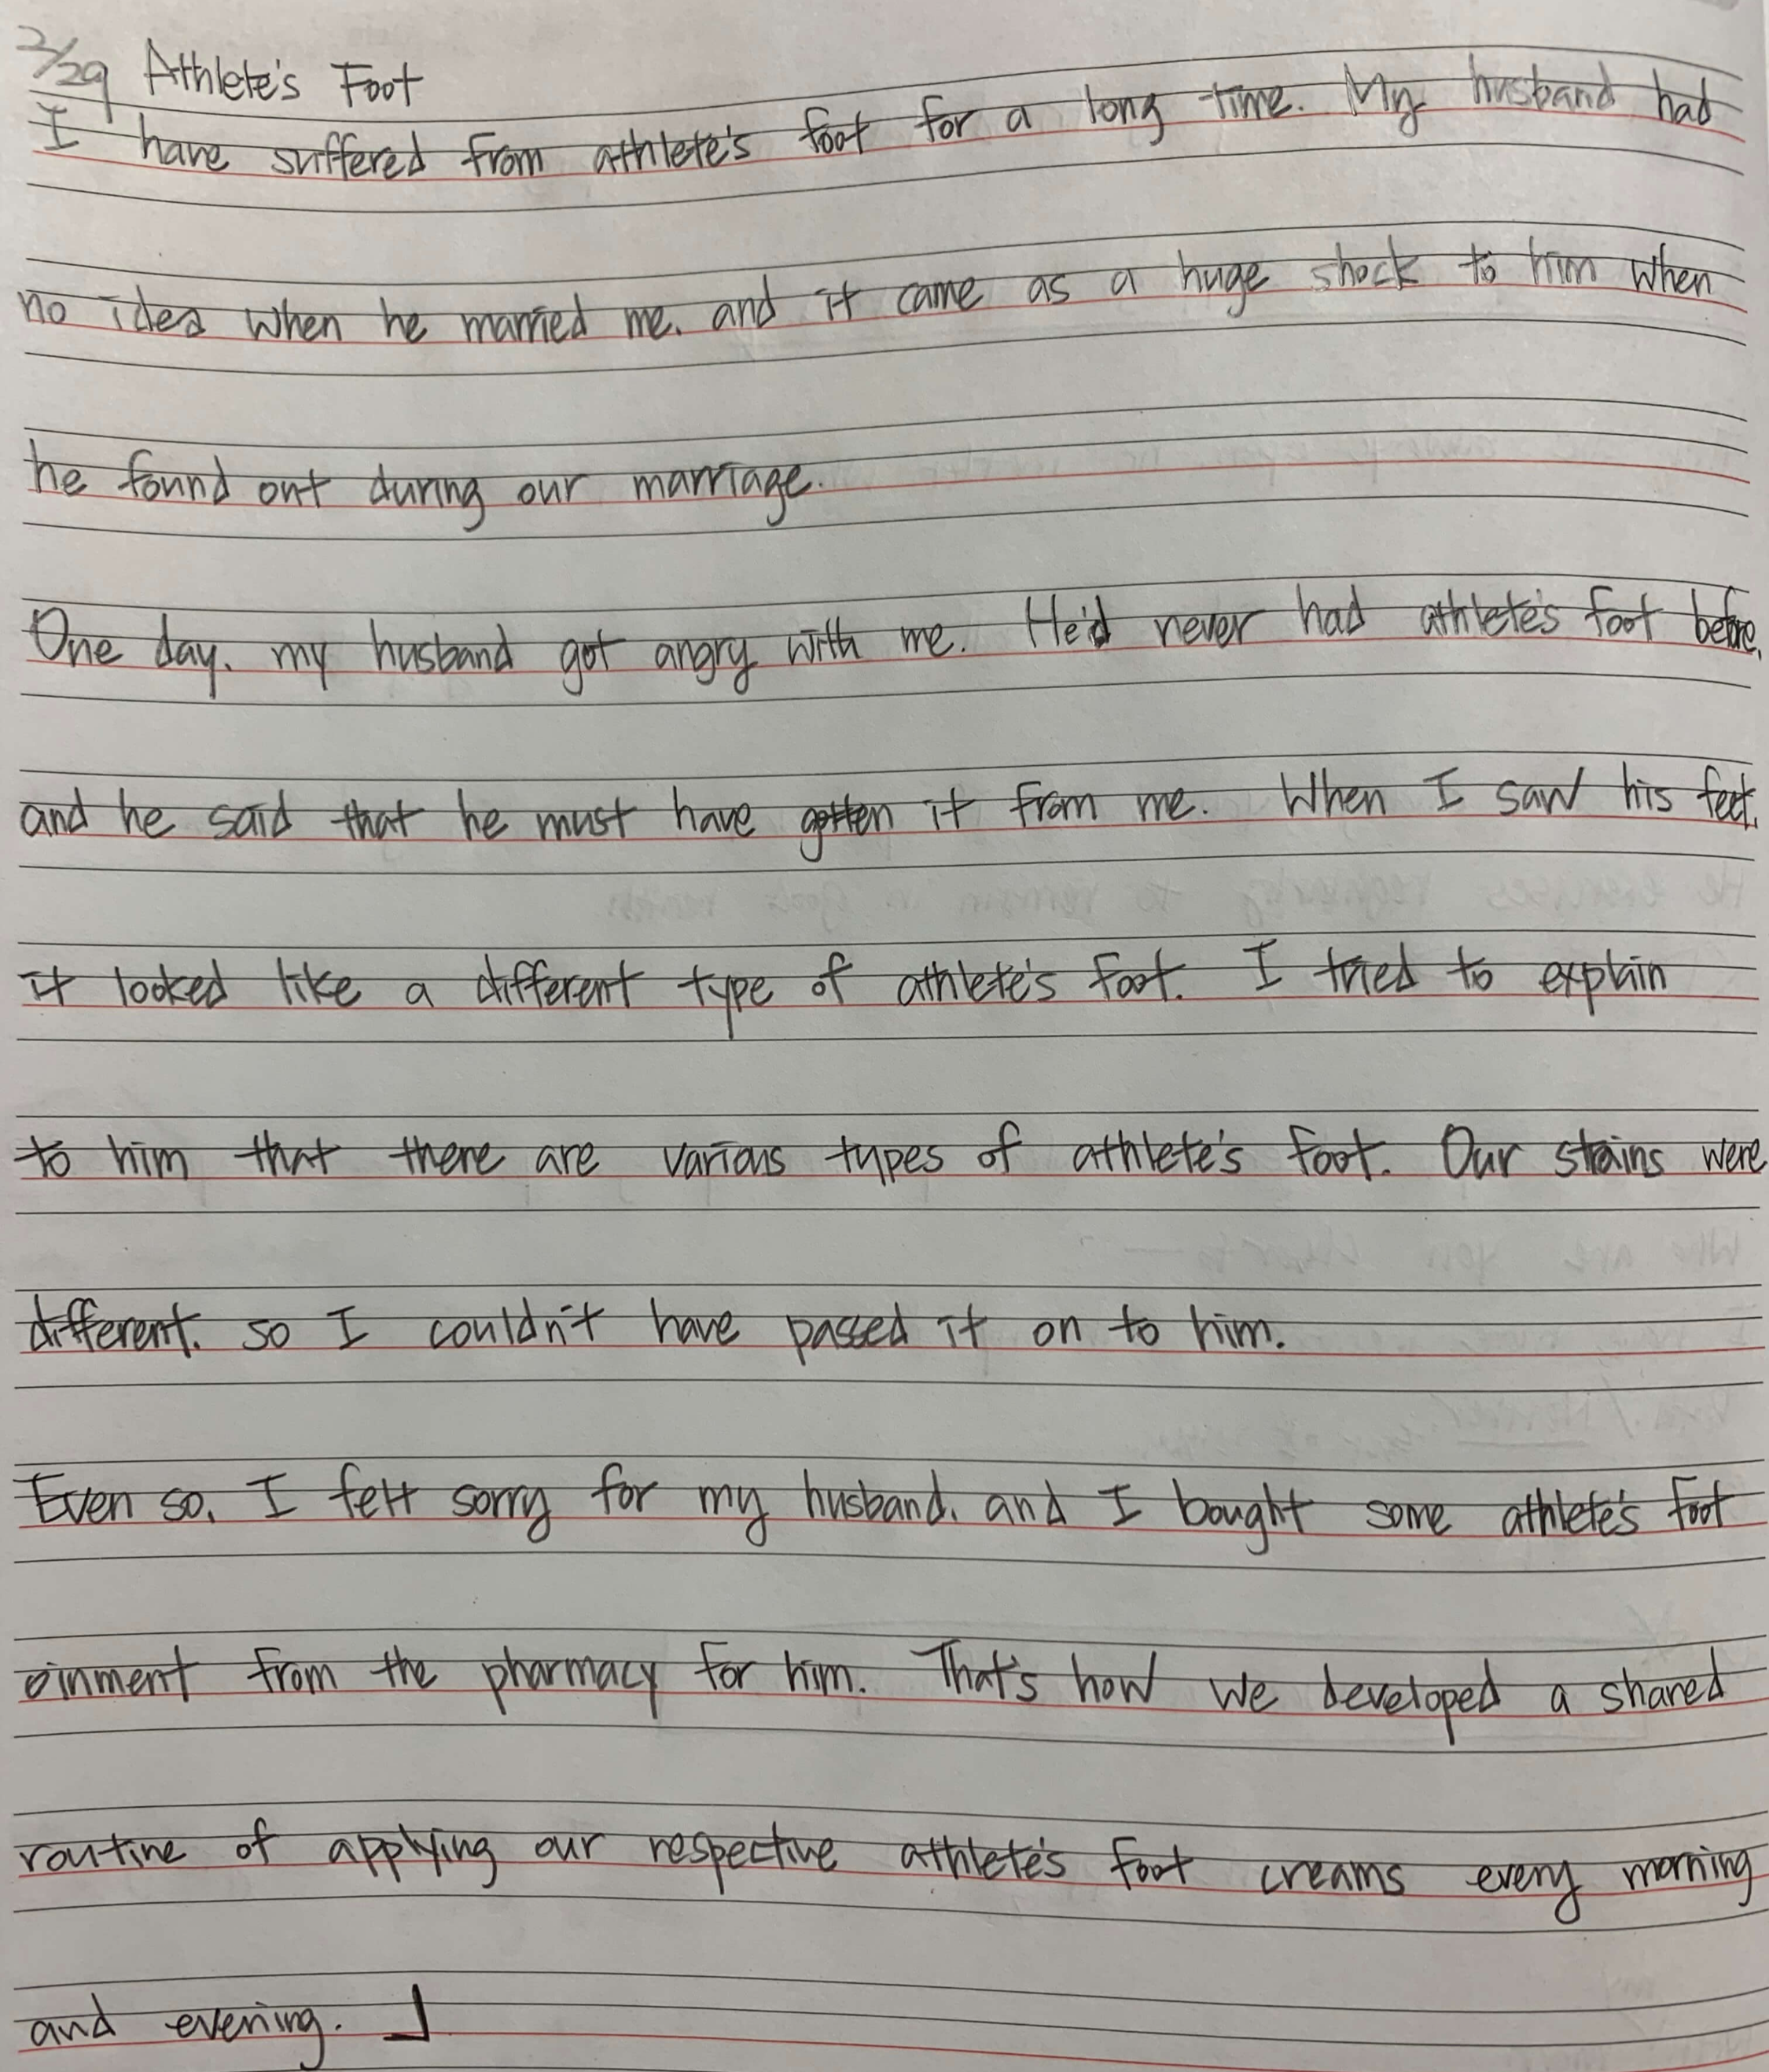 2/29 Athlete's Foot
I have suffered from athlete's foot for a long time. My husband had
no idea when he married me, and it came as a huge shock to him when
he found out during our marriage.
One day, my husband got angry with me. He'd never had athlete's foot before,
and he said that he must have gotten it from me. When I saw his feet,
it looked like a different type of athlete's foot. I tried to explain
to him that there are various types of athlete's foot. Our strains were
different, so I couldn't have passed it on to him.
Even so, I felt sorry for my husband, and I bought some athlete's foot
oinment from the pharmacy for him. That's how we developed a shared
routine of applying our respective athlete's foot creams every morning
and evening.